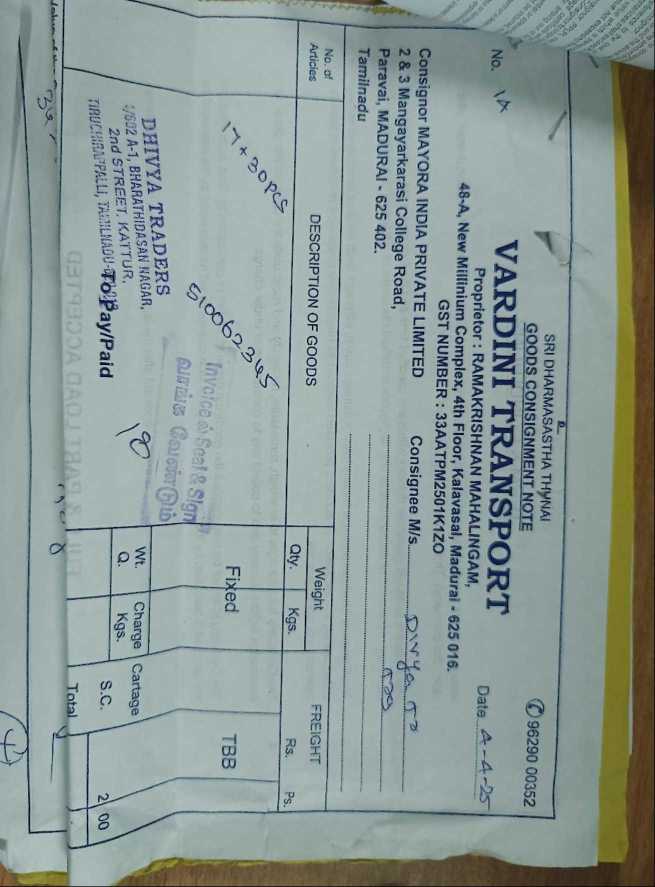 SRI DHARMASASTHA THUNAI
GOODS CONSIGNMENT NOTE
96290 00352
VARDINI TRANSPORT
Proprietor : RAMAKRISHNAN MAHALINGAM,
48-A, New Millinium Complex, 4th Floor, Kalavasal, Madurai - 625 016.
GST NUMBER : 33AATPM2501K1ZO
No.
Date 4-4-25
Consignor MAYORA INDIA PRIVATE LIMITED
Consignee M/s.
2 & 3 Mangayarkarasi College Road,
Paravai, MADURAI - 625 402.
Tamilnadu
No. of Articles
DESCRIPTION OF GOODS
Weight
Qty. Kgs.
FREIGHT
Rs. Ps.
17 + 30pcs
510062345
Fixed
TBB
Invoice ல் Seal & Sign
வாங்க வேண்டும்
DHIVYA TRADERS
4/602 A-1, BHARATHIDASAN NAGAR,
2nd STREET, KATTUR,
TIRUCHIRAPPALLI, TAMILNADU
To Pay/Paid
Wt. Q.
Charge Kgs.
Cartage
S.C. 2 00
Total
FULL & PART LOAD ACCEPTED